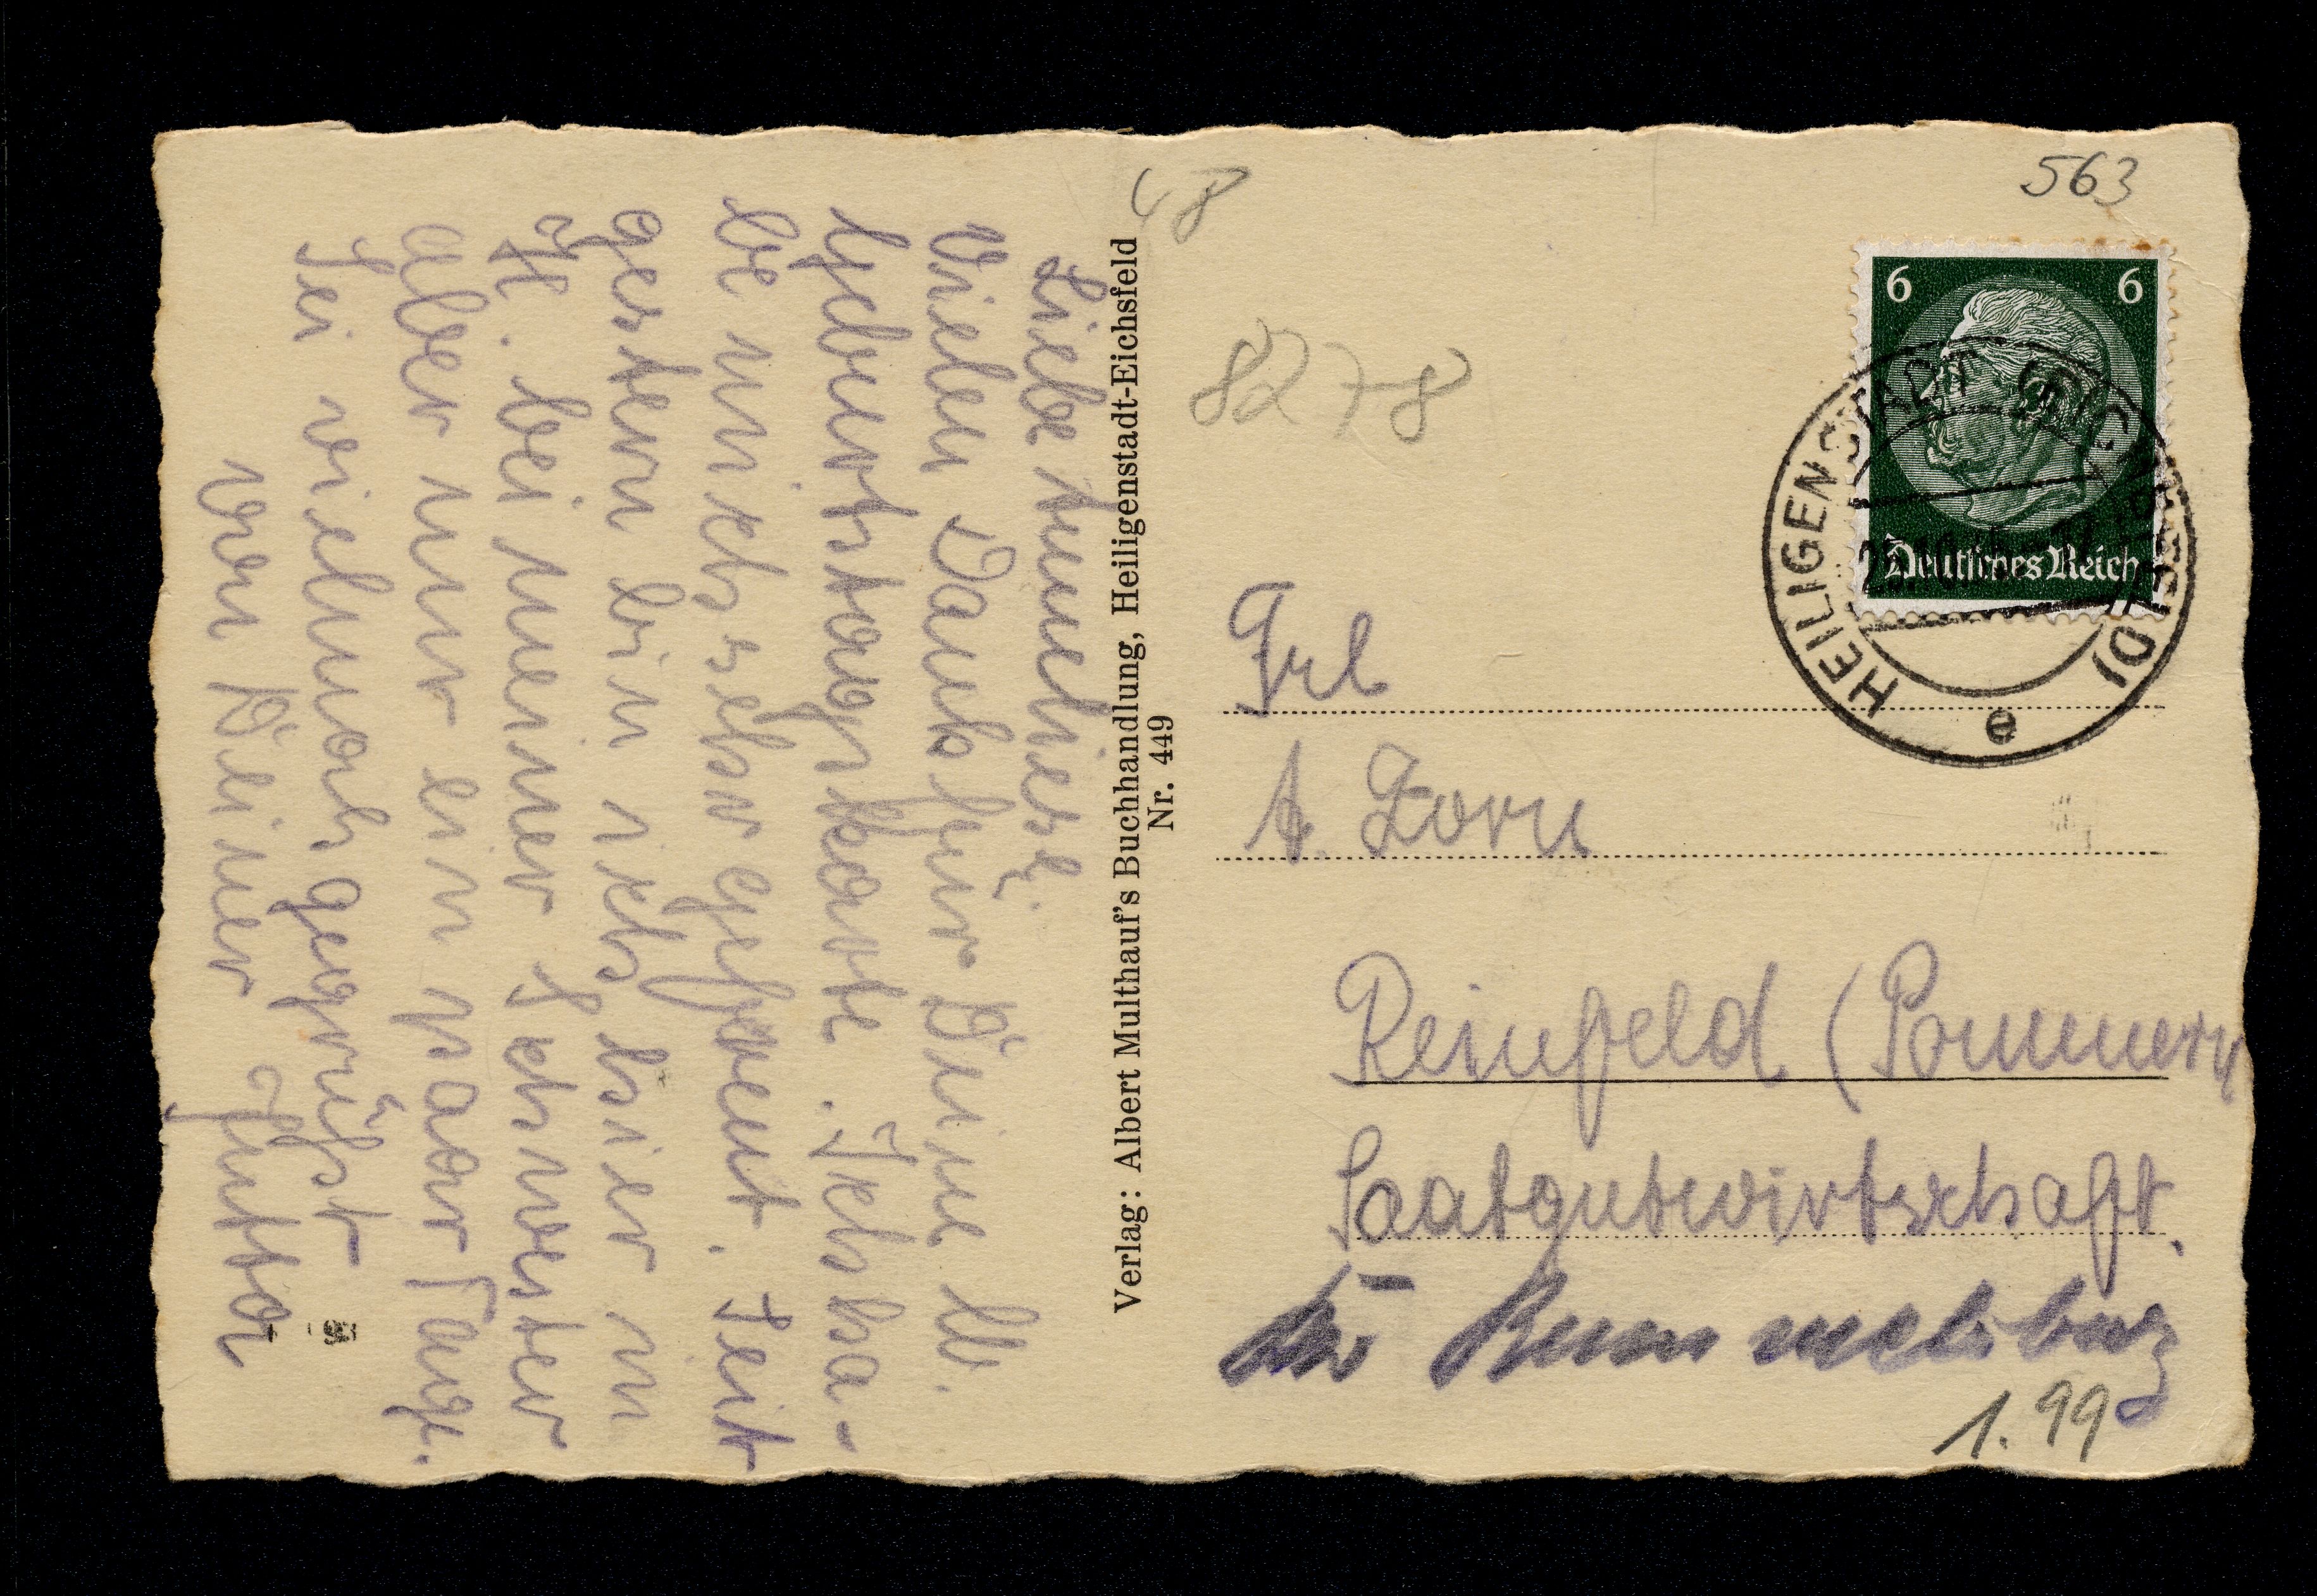 Liebe Anneliese.
Vielen Dank für Deine lb.
Geburtstagskarte. Ich ha-
be mich sehr gefreut. Seit
gestern bin ich hier in
H. bei meiner Schwester
aber nur ein paar Tage.
Sei vielmals gegrüßt
von Deiner Jutta
Verlag: Albert Multhauf's Buchhandlung, Heiligenstadt-Eichsfeld
Nr. 449
48
8278
563
6 6
Deutsches Reich
HEILIGENSTADT
e
Frl
A. Zorn
Reinfeld (Pommern
Saatgutwirtschaft.
Rummelsburg
1.99